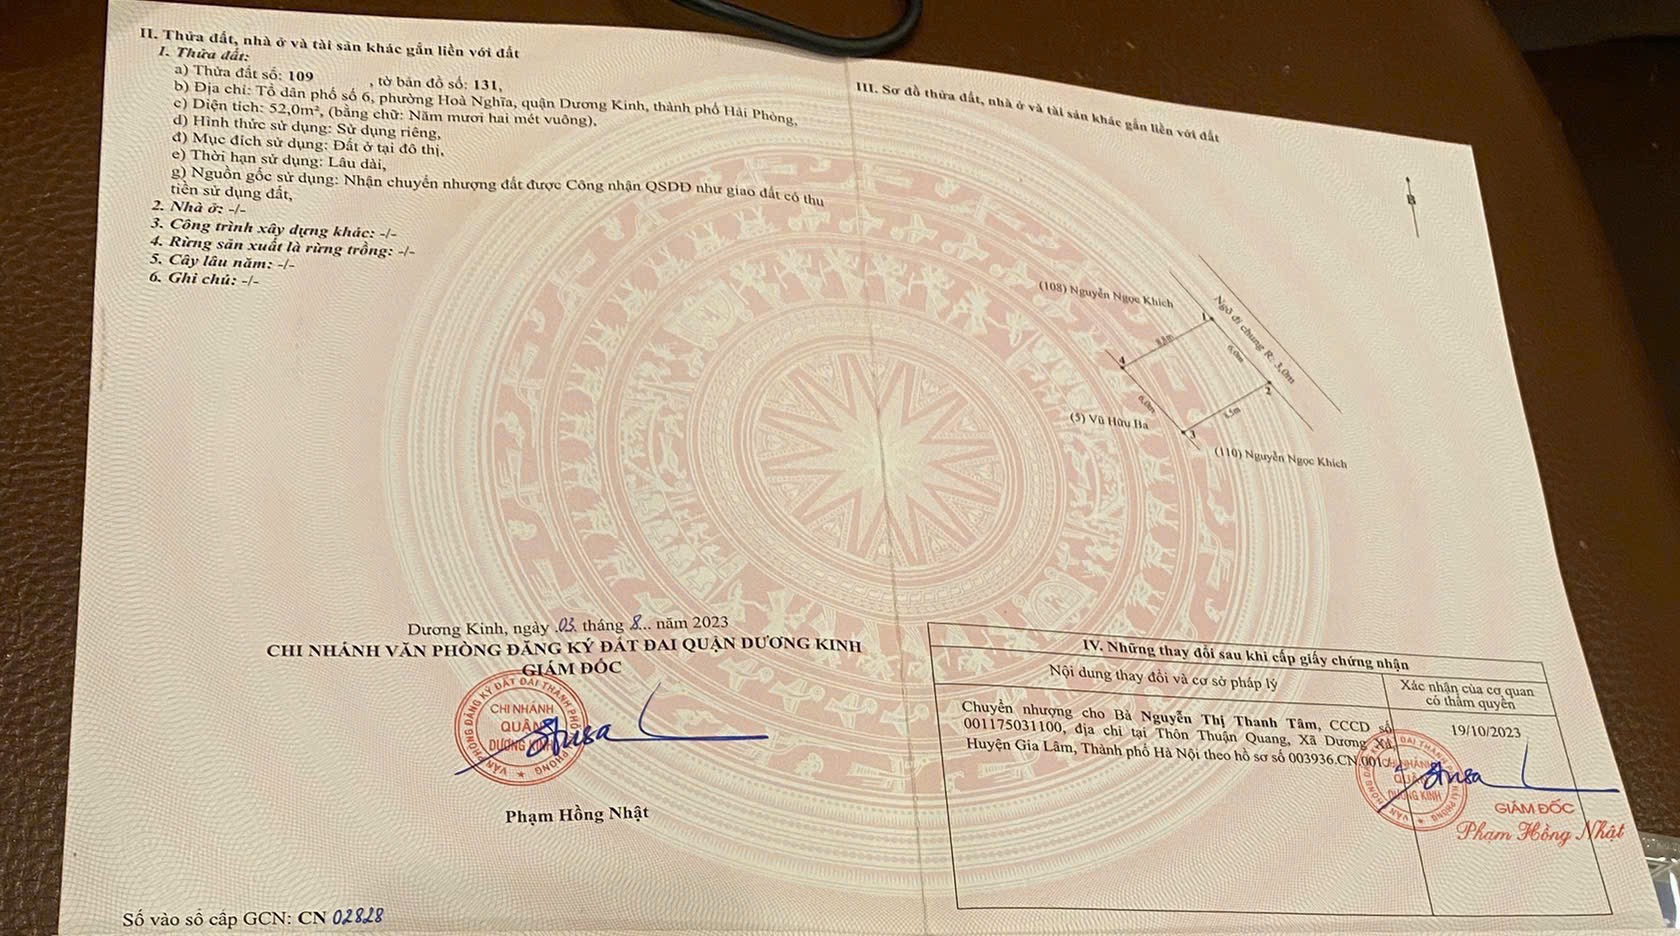 II. Thửa đất, nhà ở và tài sản khác gắn liền với đất
1. Thửa đất:
a) Thửa đất số: 109 , tờ bản đồ số: 131,
b) Địa chỉ: Tổ dân phố số 6, phường Hoà Nghĩa, quận Dương Kinh, thành phố Hải Phòng,
c) Diện tích: 52,0m², (bằng chữ: Năm mươi hai mét vuông),
d) Hình thức sử dụng: Sử dụng riêng,
đ) Mục đích sử dụng: Đất ở tại đô thị,
e) Thời hạn sử dụng: Lâu dài,
g) Nguồn gốc sử dụng: Nhận chuyển nhượng đất được Công nhận QSDĐ như giao đất có thu
tiền sử dụng đất,
2. Nhà ở: -/-
3. Công trình xây dựng khác: -/-
4. Rừng sản xuất là rừng trồng: -/-
5. Cây lâu năm: -/-
6. Ghi chú: -/-
Dương Kinh, ngày .03. tháng 8... năm 2023
CHI NHÁNH VĂN PHÒNG ĐĂNG KÝ ĐẤT ĐAI QUẬN DƯƠNG KINH
GIÁM ĐỐC
VĂN PHÒNG ĐĂNG KÝ ĐẤT ĐAI THÀNH PHỐ HẢI PHÒNG
CHI NHÁNH
QUẬN
DƯƠNG KINH
Phạm Hồng Nhật
Số vào sổ cấp GCN: CN 02828
III. Sơ đồ thửa đất, nhà ở và tài sản khác gắn liền với đất
B
(108) Nguyễn Ngọc Khích
Ngõ đi chung R: 3,0m
1
6,0m
4
2
6,0m
(5) Vũ Hữu Ba
3
(110) Nguyễn Ngọc Khích
IV. Những thay đổi sau khi cấp giấy chứng nhận
Nội dung thay đổi và cơ sở pháp lý
Xác nhận của cơ quan
có thẩm quyền
Chuyển nhượng cho Bà Nguyễn Thị Thanh Tâm, CCCD số
001175031100, địa chỉ tại Thôn Thuận Quang, Xã Dương Xá,
Huyện Gia Lâm, Thành phố Hà Nội theo hồ sơ số 003936.CN.001
19/10/2023
CHI NHÁNH
QUẬN
DƯƠNG KINH
GIÁM ĐỐC
Phạm Hồng Nhật